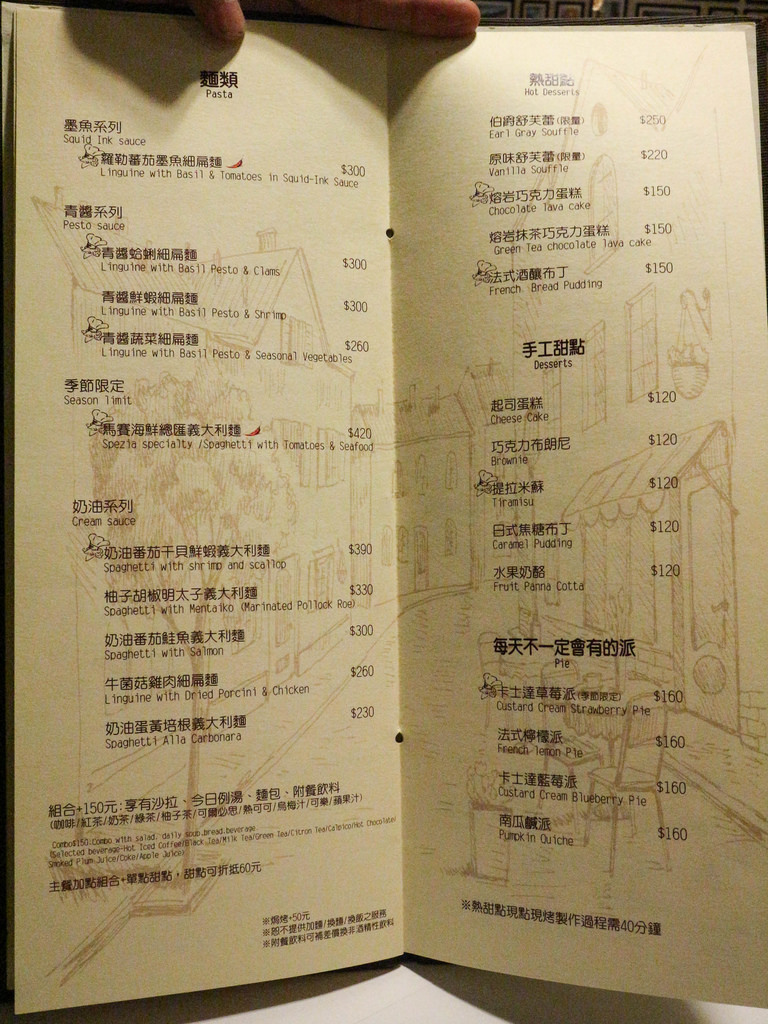 麵類
Pasta
墨魚系列
Squid Ink sauce
羅勒蕃茄墨魚細扁麵
Linguine with Basil & Tomatoes in Squid-Ink Sauce
$300
青醬系列
Pesto sauce
青醬蛤蜊細扁麵
Linguine with Basil Pesto & Clams
$300
青醬鮮蝦細扁麵
Linguine with Basil Pesto & Shrimp
$300
青醬蔬菜細扁麵
Linguine with Basil Pesto & Seasonal Vegetables
$260
季節限定
Season limit
馬賽海鮮總匯義大利麵
Spezia specialty /Spaghetti with Tomatoes & Seafood
$420
奶油系列
Cream sauce
奶油蕃茄干貝鮮蝦義大利麵
Spaghetti with shrimp and scallop
$390
柚子胡椒明太子義大利麵
Spaghetti with Mentaiko (Marinated Pollock Roe)
$330
奶油蕃茄鮭魚義大利麵
Spaghetti with Salmon
$300
牛菌菇雞肉細扁麵
Linguine with Dried Porcini & Chicken
$260
奶油蛋黃培根義大利麵
Spaghetti Alla Carbonara
$230
組合+150元:享有沙拉、今日例湯、麵包、附餐飲料
(咖啡/紅茶/奶茶/綠茶/柚子茶/可爾必思/熱可可/烏梅汁/可樂/蘋果汁)
Combo$150:combo with salad, daily soup,bread,beverage
(Selected beverage-Hot Iced Coffee/Black Tea/Milk Tea/Green Tea/Citron Tea/Calpico/Hot Chocolate/
Smoked Plum Juice/Coke/Apple Juice)
主餐加點組合+單點甜點，甜點可折抵60元
※焗烤+50元
※恕不提供加麵/換麵/換飯之服務
※附餐飲料可補差價換非酒精性飲料
熱甜點
Hot Desserts
伯爵舒芙蕾(限量)
Earl Gray Souffle
$250
原味舒芙蕾(限量)
Vanilla Souffle
$220
熔岩巧克力蛋糕
Chocolate lava cake
$150
熔岩抹茶巧克力蛋糕
Green Tea chocolate lava cake
$150
法式酒釀布丁
French Bread Pudding
$150
手工甜點
Desserts
起司蛋糕
Cheese Cake
$120
巧克力布朗尼
Brownie
$120
提拉米蘇
Tiramisu
$120
日式焦糖布丁
Caramel Pudding
$120
水果奶酪
Fruit Panna Cotta
$120
每天不一定會有的派
Pie
卡士達草莓派(季節限定)
Custard Cream Strawberry Pie
$160
法式檸檬派
French lemon Pie
$160
卡士達藍莓派
Custard Cream Blueberry Pie
$160
南瓜鹹派
Pumpkin Quiche
$160
※熱甜點現點現烤製作過程需40分鐘